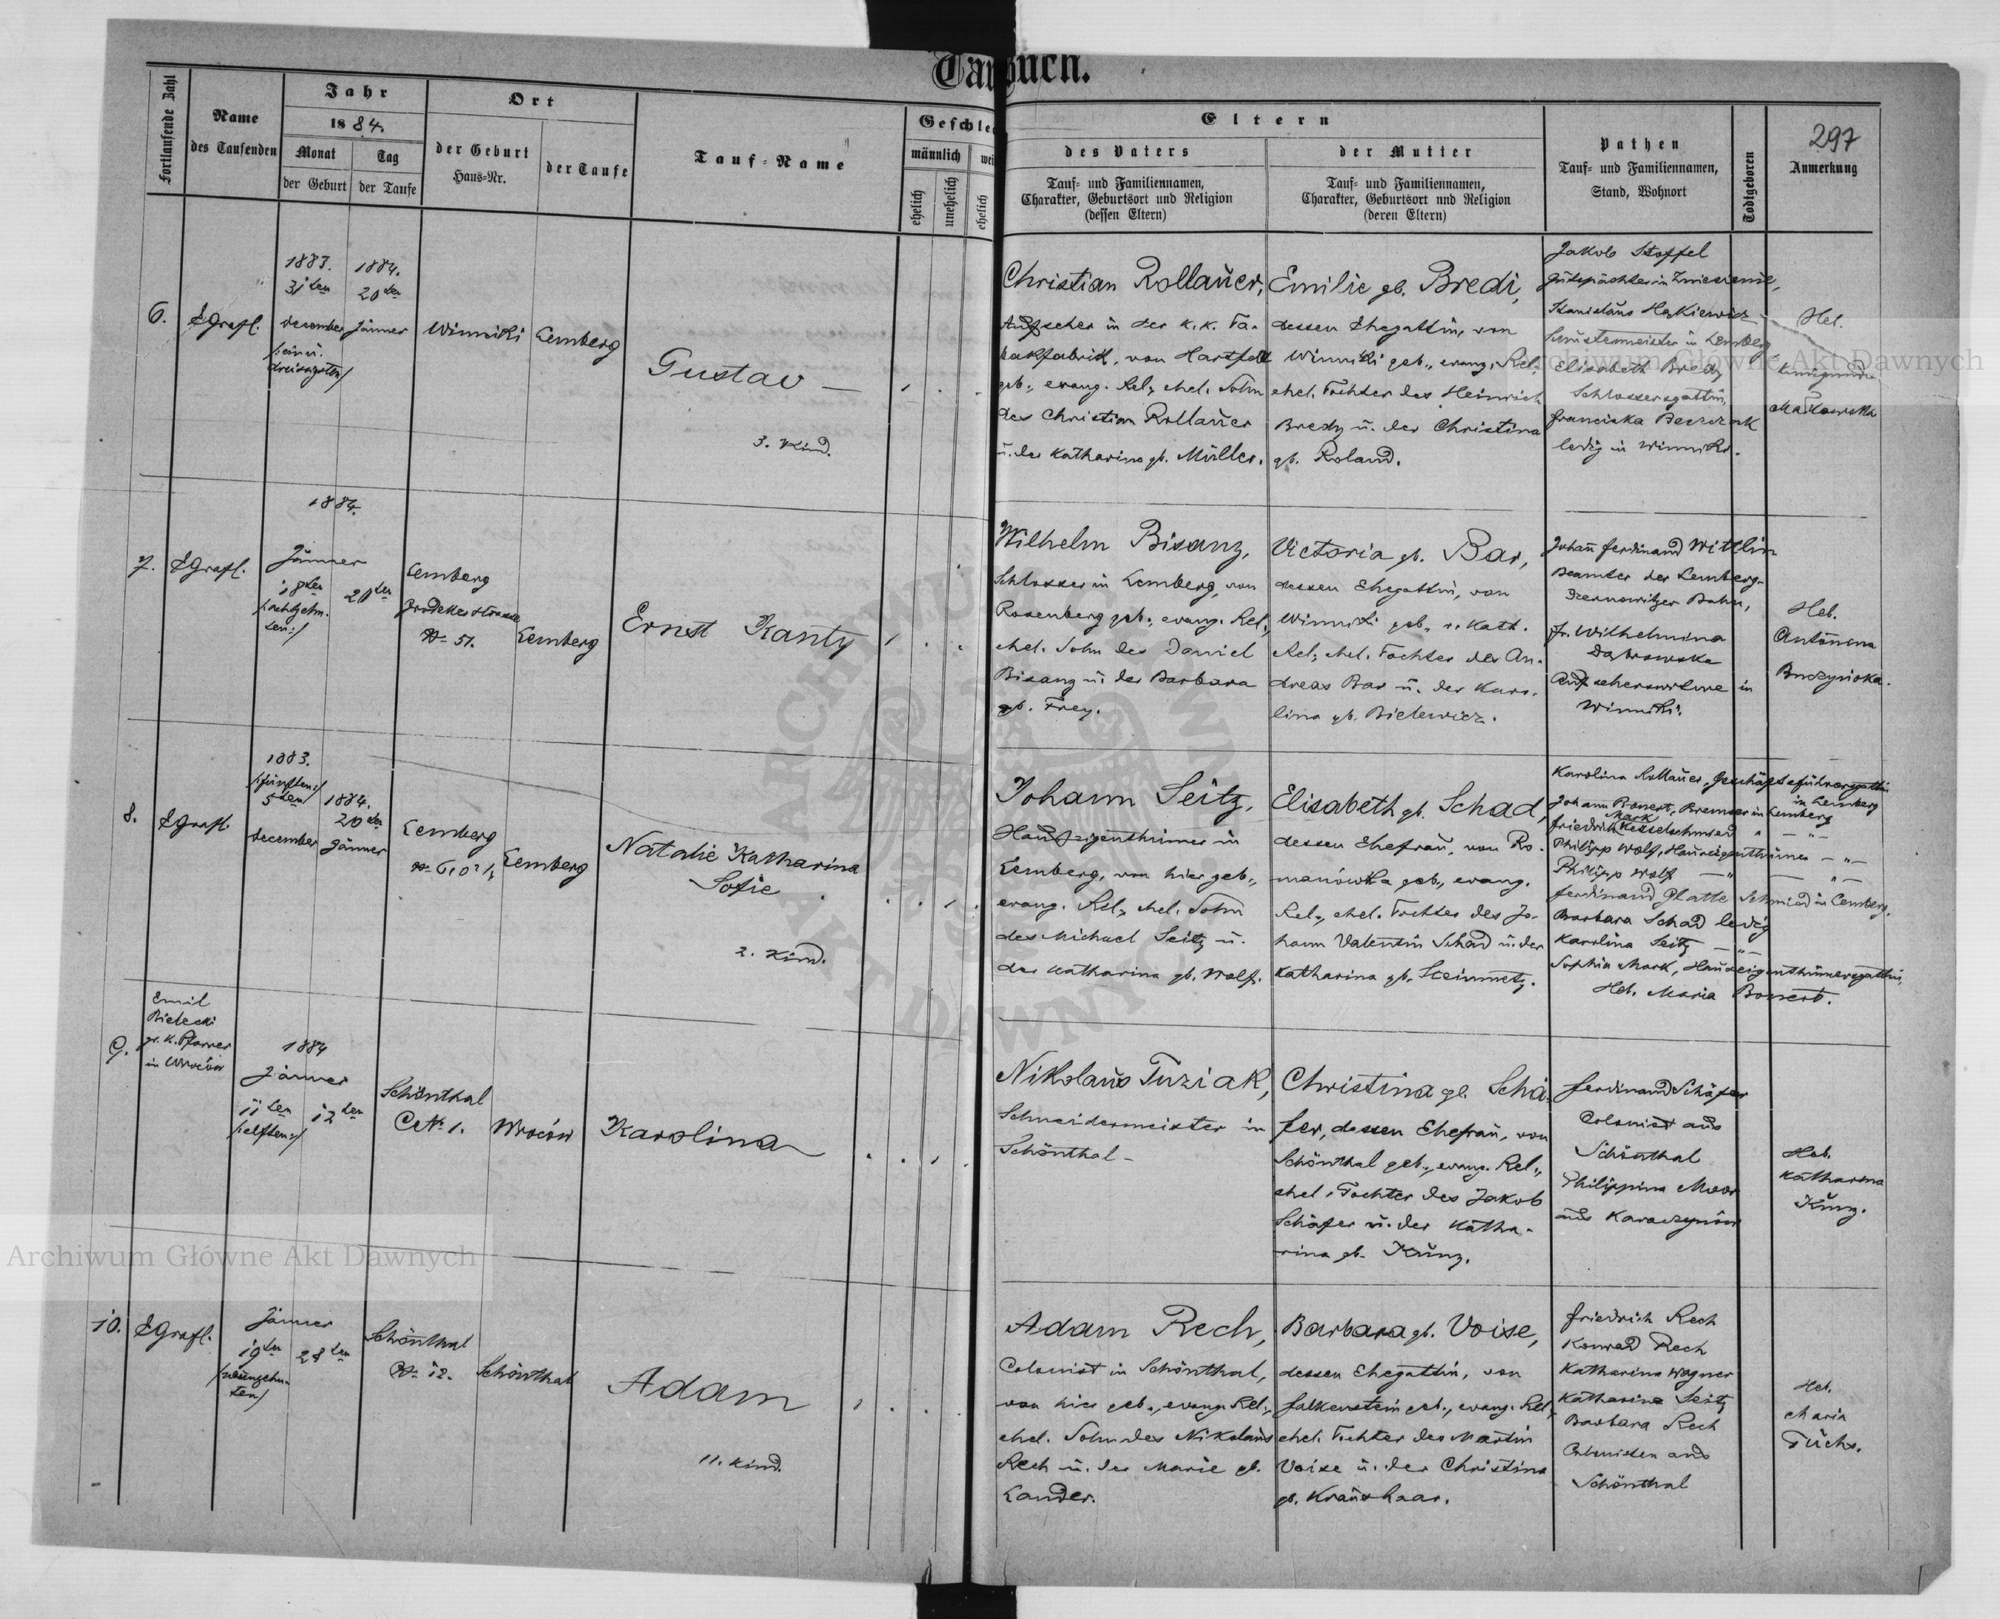 Taufbuch.
297
Fortlaufende Zahl
Name
des Taufenden
Jahr
1884.
Monat
der Geburt
Tag
der Taufe
Ort
der Geburt
Haus-Nr.
der Taufe
Tauf-Name
Geschlec
männlich
wei
ehelich
unehelich
ehelich
Eltern
des Vaters
Tauf- und Familiennamen,
Charakter, Geburtsort und Religion
(dessen Eltern)
der Mutter
Tauf- und Familiennamen,
Charakter, Geburtsort und Religion
(deren Eltern)
Pathen
Tauf- und Familiennamen,
Stand, Wohnort
Todtgeboren
Anmerkung
6.
EGrafl.
1883.
31ten
December
/:ein u.
dreissigsten/
1884.
20ten
Jänner
Winniki
Lemberg
Gustav —
3. Kind.
Christian Rollauer,
Aufseher in der k. k. Ta-
bakfabrik, von Hartfeld
geb., evang. Rel., ehel. Sohn
des Christian Rollauer
u. der Katharina gb. Müller.
Emilie gb. Bredi,
dessen Ehegattin, von
Winniki geb., evang. Rel.,
ehel. Tochter des Heinrich
Bredy u. der Christina
gb. Roland.
Jakob Stoffel
Gutspächter in
Stanislaus
in Lemberg
Elisabeth Bredy
Schlossersgattin,
Franciska
ledig in Winniki.
Heb.
Kunigunda
Makowska
7.
EGrafl.
1884.
Jänner
18ten
/:achtzehn-
ten:/
20ten
Lemberg
Grodeker strasse
No 51.
Lemberg
Ernst Kanty
Wilhelm Bisanz,
Schlosser in Lemberg, von
Rosenberg geb., evang. Rel.,
ehel. Sohn des Daniel
Bisanz u. der Barbara
gb. Frey.
Victoria gb. Bar,
dessen Ehegattin, von
Winniki geb., r. kath.
Rel., ehel. Tochter des An-
dreas Bar u. der Karo-
lina gb. Bielewicz.
Johann Ferdinand Wittlin
Beamter der Lemberg-
Czernowitzer Bahn,
Fr. Wilhelmina
Dąbrowska
Aufseherswitwe in
Winniki.
Heb.
Antonina
Buczyńska.
8.
EGrafl.
1883.
/:fünften:/
5ten
December
1884.
20ten
Jänner
Lemberg
Lemberg
Natalie Katharina
Sofie
2. Kind.
Johann Seitz,
Hauseigenthümer in
Lemberg, von hier geb.,
evang. Rel., ehel. Sohn
des Michael Seitz u.
der Katharina gb. Wolf.
Elisabeth gb. Schad,
dessen Ehefrau, von Ro-
manówka geb., evang.
Rel., ehel. Tochter des Jo-
hann Valentin Schad u. der
Katharina gb. Steinmetz.
Karolina Rollauer, Geschäftsführersgattin
in Lemberg
Johann Bonert, Bremser in Lemberg
Friedrich Mark Kesselschmied " — " —
Philipp Wolf, Hauseigenthümer — " —
Philipp Wolf — " — — " —
Ferdinand Platte Schmied in Lemberg.
Barbara Schad ledig
Karolina Seitz — " —
Sophia Mark, Hauseigenthümersgattin,
Heb. Maria Bonert.
9.
Emil
Bielecki
gr. k. Pfarrer
in Wroców
1884
Jänner
11ten
/:elften:/
12ten
Schönthal
CNo 1.
Wroców
Karolina
Nikolaus Tuziak,
Schneidermeister in
Schönthal —
Christina gb. Schä-
fer, dessen Ehefrau, von
Schönthal geb., evang. Rel.,
ehel. Tochter des Jakob
Schäfer u. der Katha-
rina gb. Kunz.
Ferdinand Schäfer
Colonist aus
Schönthal
Philippina Moor
aus Karaczynów
Heb.
Katharina
Kunz.
10.
EGrafl.
Jänner
19ten
/neunzehn-
ten/
28ten
Schönthal
No 12.
Schönthal
Adam
11. Kind.
Adam Rech,
Colonist in Schönthal,
von hier geb., evang. Rel.,
ehel. Sohn des Nikolaus
Rech u. der Marie gb.
Lander.
Barbara gb. Voise,
dessen Ehegattin, von
Falkenstein geb., evang. Rel.,
ehel. Tochter des Martin
Voise u. der Christina
gb. Kraushaar.
Friedrich Rech
Konrad Rech
Katharina Wagner
Katharina Seitz
Barbara Rech
Colonisten aus
Schönthal
Heb.
Maria
Fuchs.
Archiwum Główne Akt Dawnych
Archiwum Główne Akt Dawnych
ARCHIWUM GŁÓWNE AKT DAWNYCH